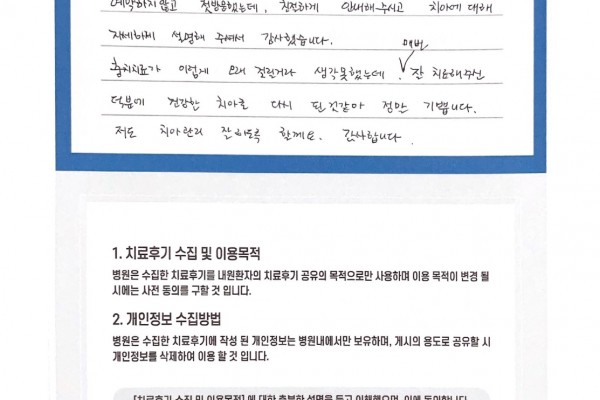 예약하지 않고 첫방문했는데, 친절하게 안내해주시고 치아에 대해
자세하게 설명해 주셔서 감사했습니다.
충치치료가 이렇게 오래 걸린거라 생각못했는데, 매번 잘 치료해주신
덕분에 건강한 치아로 다시 된것같아 정말 기쁩니다.
저도 치아관리 잘 하도록 할께요. 감사합니다.
1. 치료후기 수집 및 이용목적
병원은 수집한 치료후기를 내원환자의 치료후기 공유의 목적으로만 사용하며 이용 목적이 변경 될
시에는 사전 동의를 구할 것 입니다.
2. 개인정보 수집방법
병원은 수집한 치료후기에 작성 된 개인정보는 병원내에서만 보유하며, 게시의 용도로 공유할 시
개인정보를 삭제하여 이용 할 것 입니다.
[치료후기 수집 및 이용목적] 에 대한 충분한 설명을 듣고 이해했으며, 이에 동의합니다.